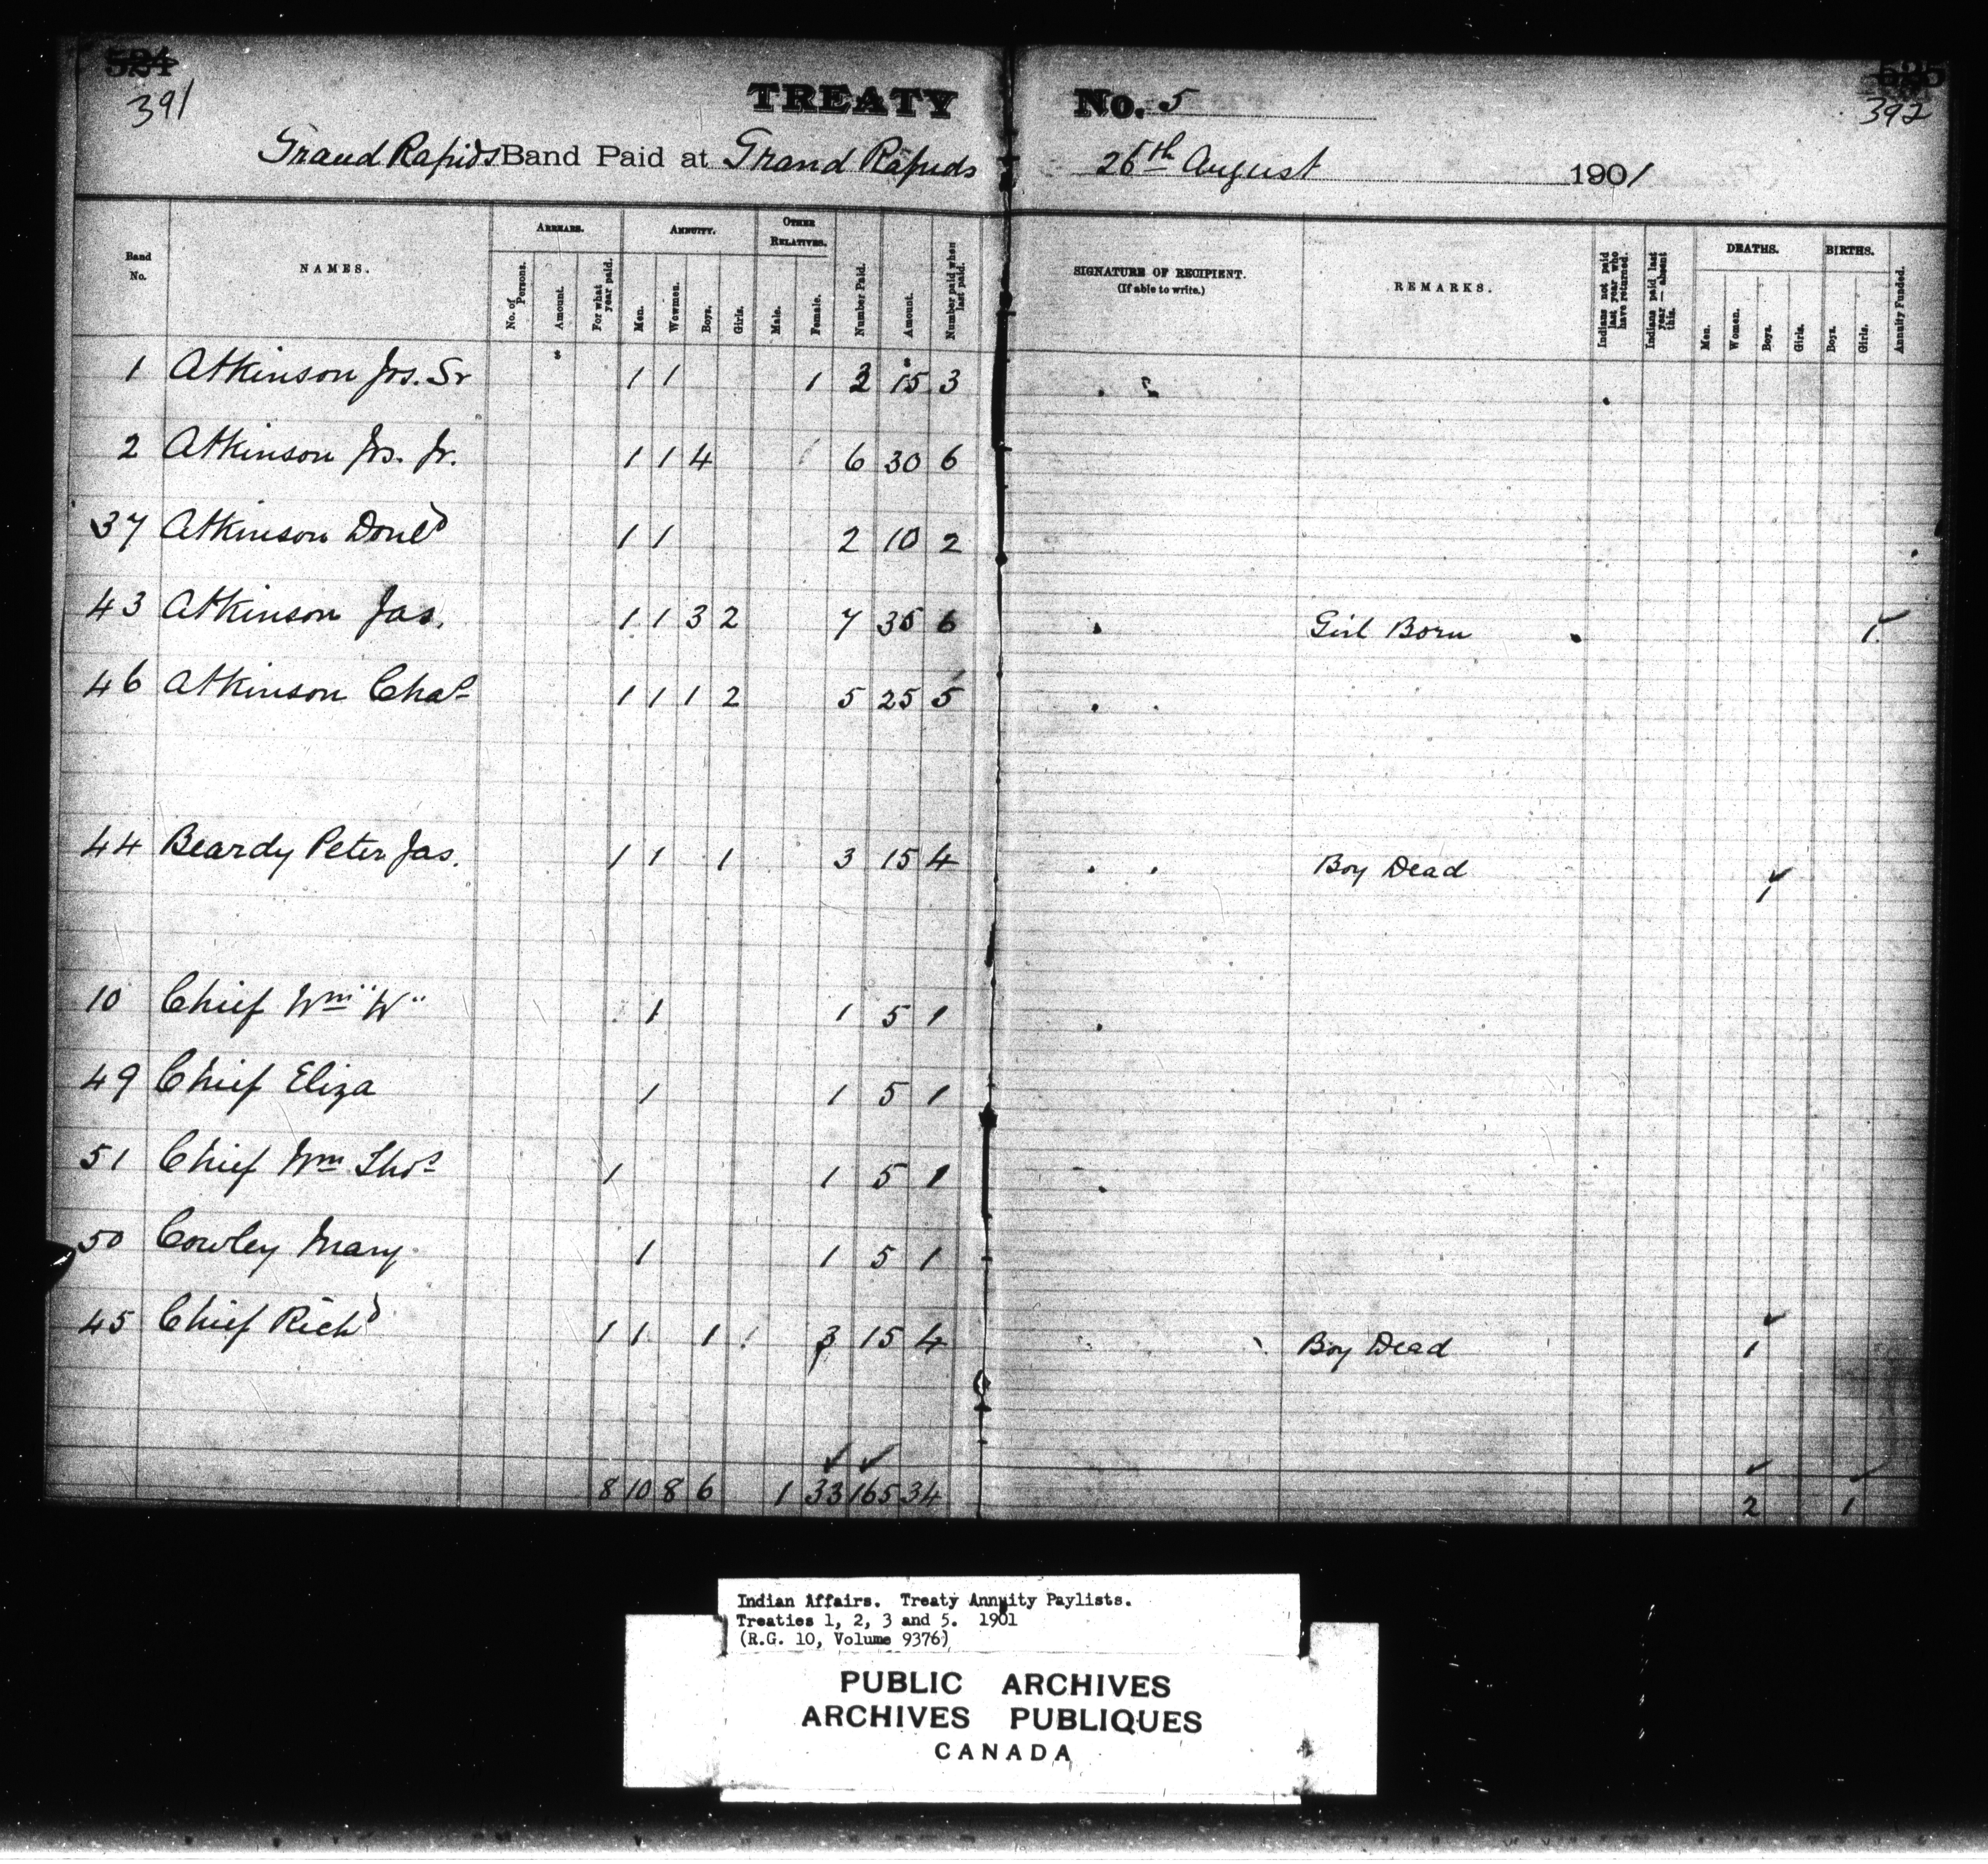 524 TREATY No. 5 525
391 392
Grand Rapids Band Paid at Grand Rapids 26th August 1901
Band No. NAMES. ARREARS. ANNUITY. OTHER RELATIVES. Number Paid. Amount. Number paid when last paid. SIGNATURE OF RECIPIENT. (If able to write.) REMARKS. Indians not paid last year who have returned. Indians paid last year — absent this. DEATHS. BIRTHS. Annuity Funded.
No. of Persons. Amount. For what year paid. Men. Women. Boys. Girls. Male. Female. Men. Women. Boys. Girls. Boys. Girls.
1 Atkinson Jos. Sr 1 1 1 3 15 3
2 Atkinson Jos. Jr. 1 1 4 6 30 6
37 Atkinson Donld 1 1 2 10 2
43 Atkinson Jas. 1 1 3 2 7 35 6 Girl Born 1
46 Atkinson Chas 1 1 1 2 5 25 5
44 Beardy Peter Jas. 1 1 1 3 15 4 Boy Dead 1
10 Chief Wm "W" 1 1 5 1
49 Chief Eliza 1 1 5 1
51 Chief Wm Thos 1 1 5 1
50 Cowley Mary 1 1 5 1
45 Chief Richd 1 1 1 3 15 4 Boy Dead 1
8 10 8 6 1 33 165 34 2 1
Indian Affairs. Treaty Annuity Paylists.
Treaties 1, 2, 3 and 5. 1901
(R.G. 10, Volume 9376)
PUBLIC ARCHIVES
ARCHIVES PUBLIQUES
CANADA